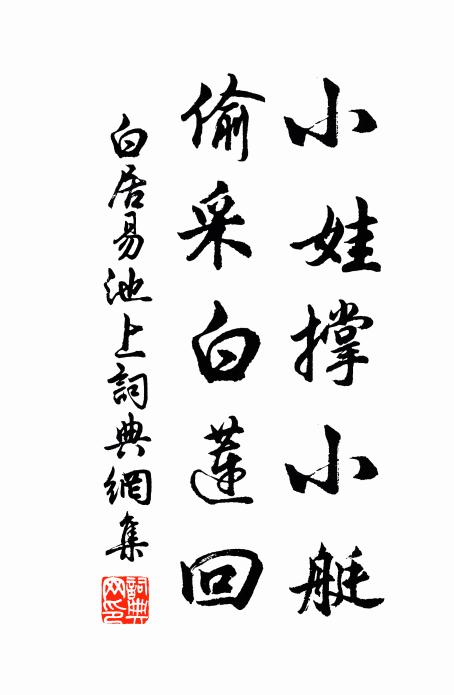 小娃撑小艇
偷采白莲回
白居易池上詞典網集
詞典网印